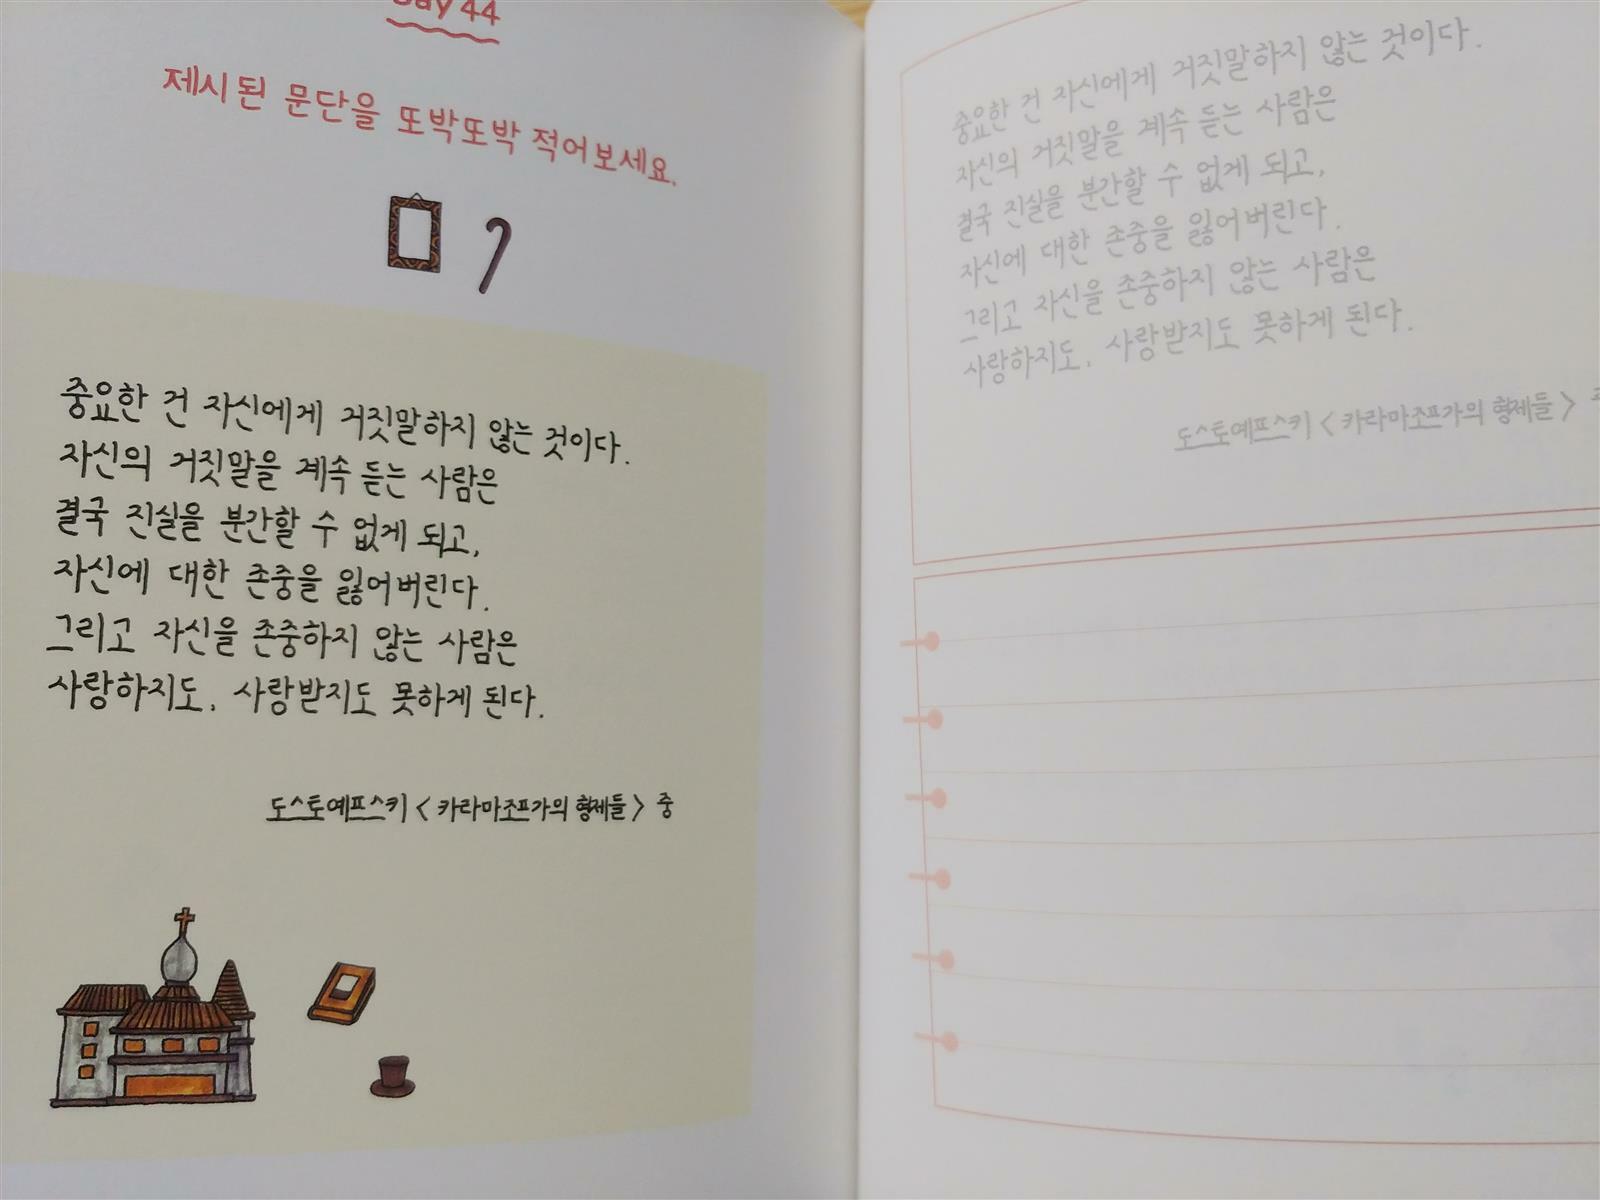 Day 44
제시된 문단을 또박또박 적어보세요.
중요한 건 자신에게 거짓말하지 않는 것이다.
자신의 거짓말을 계속 듣는 사람은
결국 진실을 분간할 수 없게 되고,
자신에 대한 존중을 잃어버린다.
그리고 자신을 존중하지 않는 사람은
사랑하지도, 사랑받지도 못하게 된다.
도스토예프스키 <카라마조프가의 형제들> 중
중요한 건 자신에게 거짓말하지 않는 것이다.
자신의 거짓말을 계속 듣는 사람은
결국 진실을 분간할 수 없게 되고,
자신에 대한 존중을 잃어버린다.
그리고 자신을 존중하지 않는 사람은
사랑하지도, 사랑받지도 못하게 된다.
도스토예프스키 <카라마조프가의 형제들>